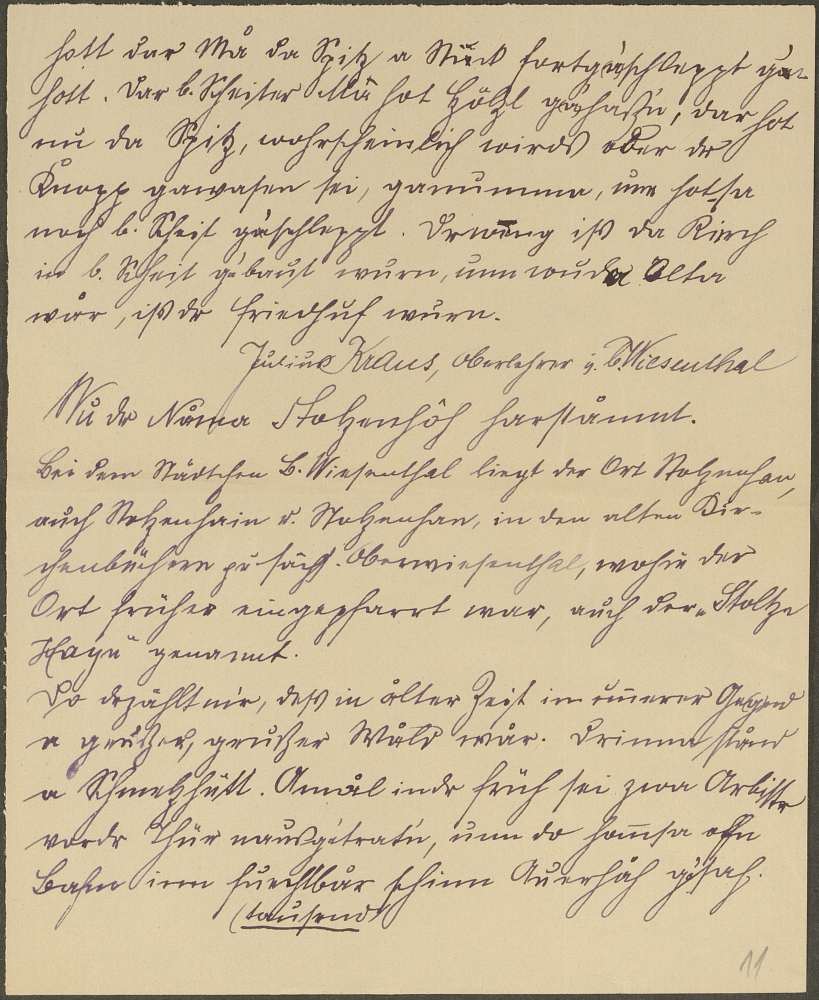 hott dar Må da Spitz a Stück fortgäschleppt ga-
hott. Dar b. Scheiter Må hot Hölzl gähaßn, dar hot
nu da Spitz, wohrscheinlich wirds ober dr
Knopp gawasen sei, ganumma, un hotsa
noch b. Scheit gäschleppt. Drweng iß da Kirch
in b. Scheit gebaut wurn, unn wu da Olta
wår, iß dr Friedhuf wurn.
Julius Kraus, Oberlehrer i. B. Wiesenthal
Wu dr Nåma Stolzenhöh harståmmt.
Bei dem Städtchen B. Wiesenthal liegt der Ort Stolzenhan,
auch Stolzenhain u. Stolzenhan, in den alten Kir-
chenbüchern zu sächs. Oberwiesenthal, wohin der
Ort früher eingepfarrt war, auch der „Stoltze
Hayn" genannt.
Do drzähltmr, daß in ålter Zeit in unnerer Gegend
a grußer, grußer Wåld wår. Drinna stånd
a Schmelzhütt. Amål in dr Früh sei zwa Arbitter
vordr Thür nausgetratn, unn do homsa offn
Bahm inn furchtbår schinn Auerhåh gesah.
(tausend)
11